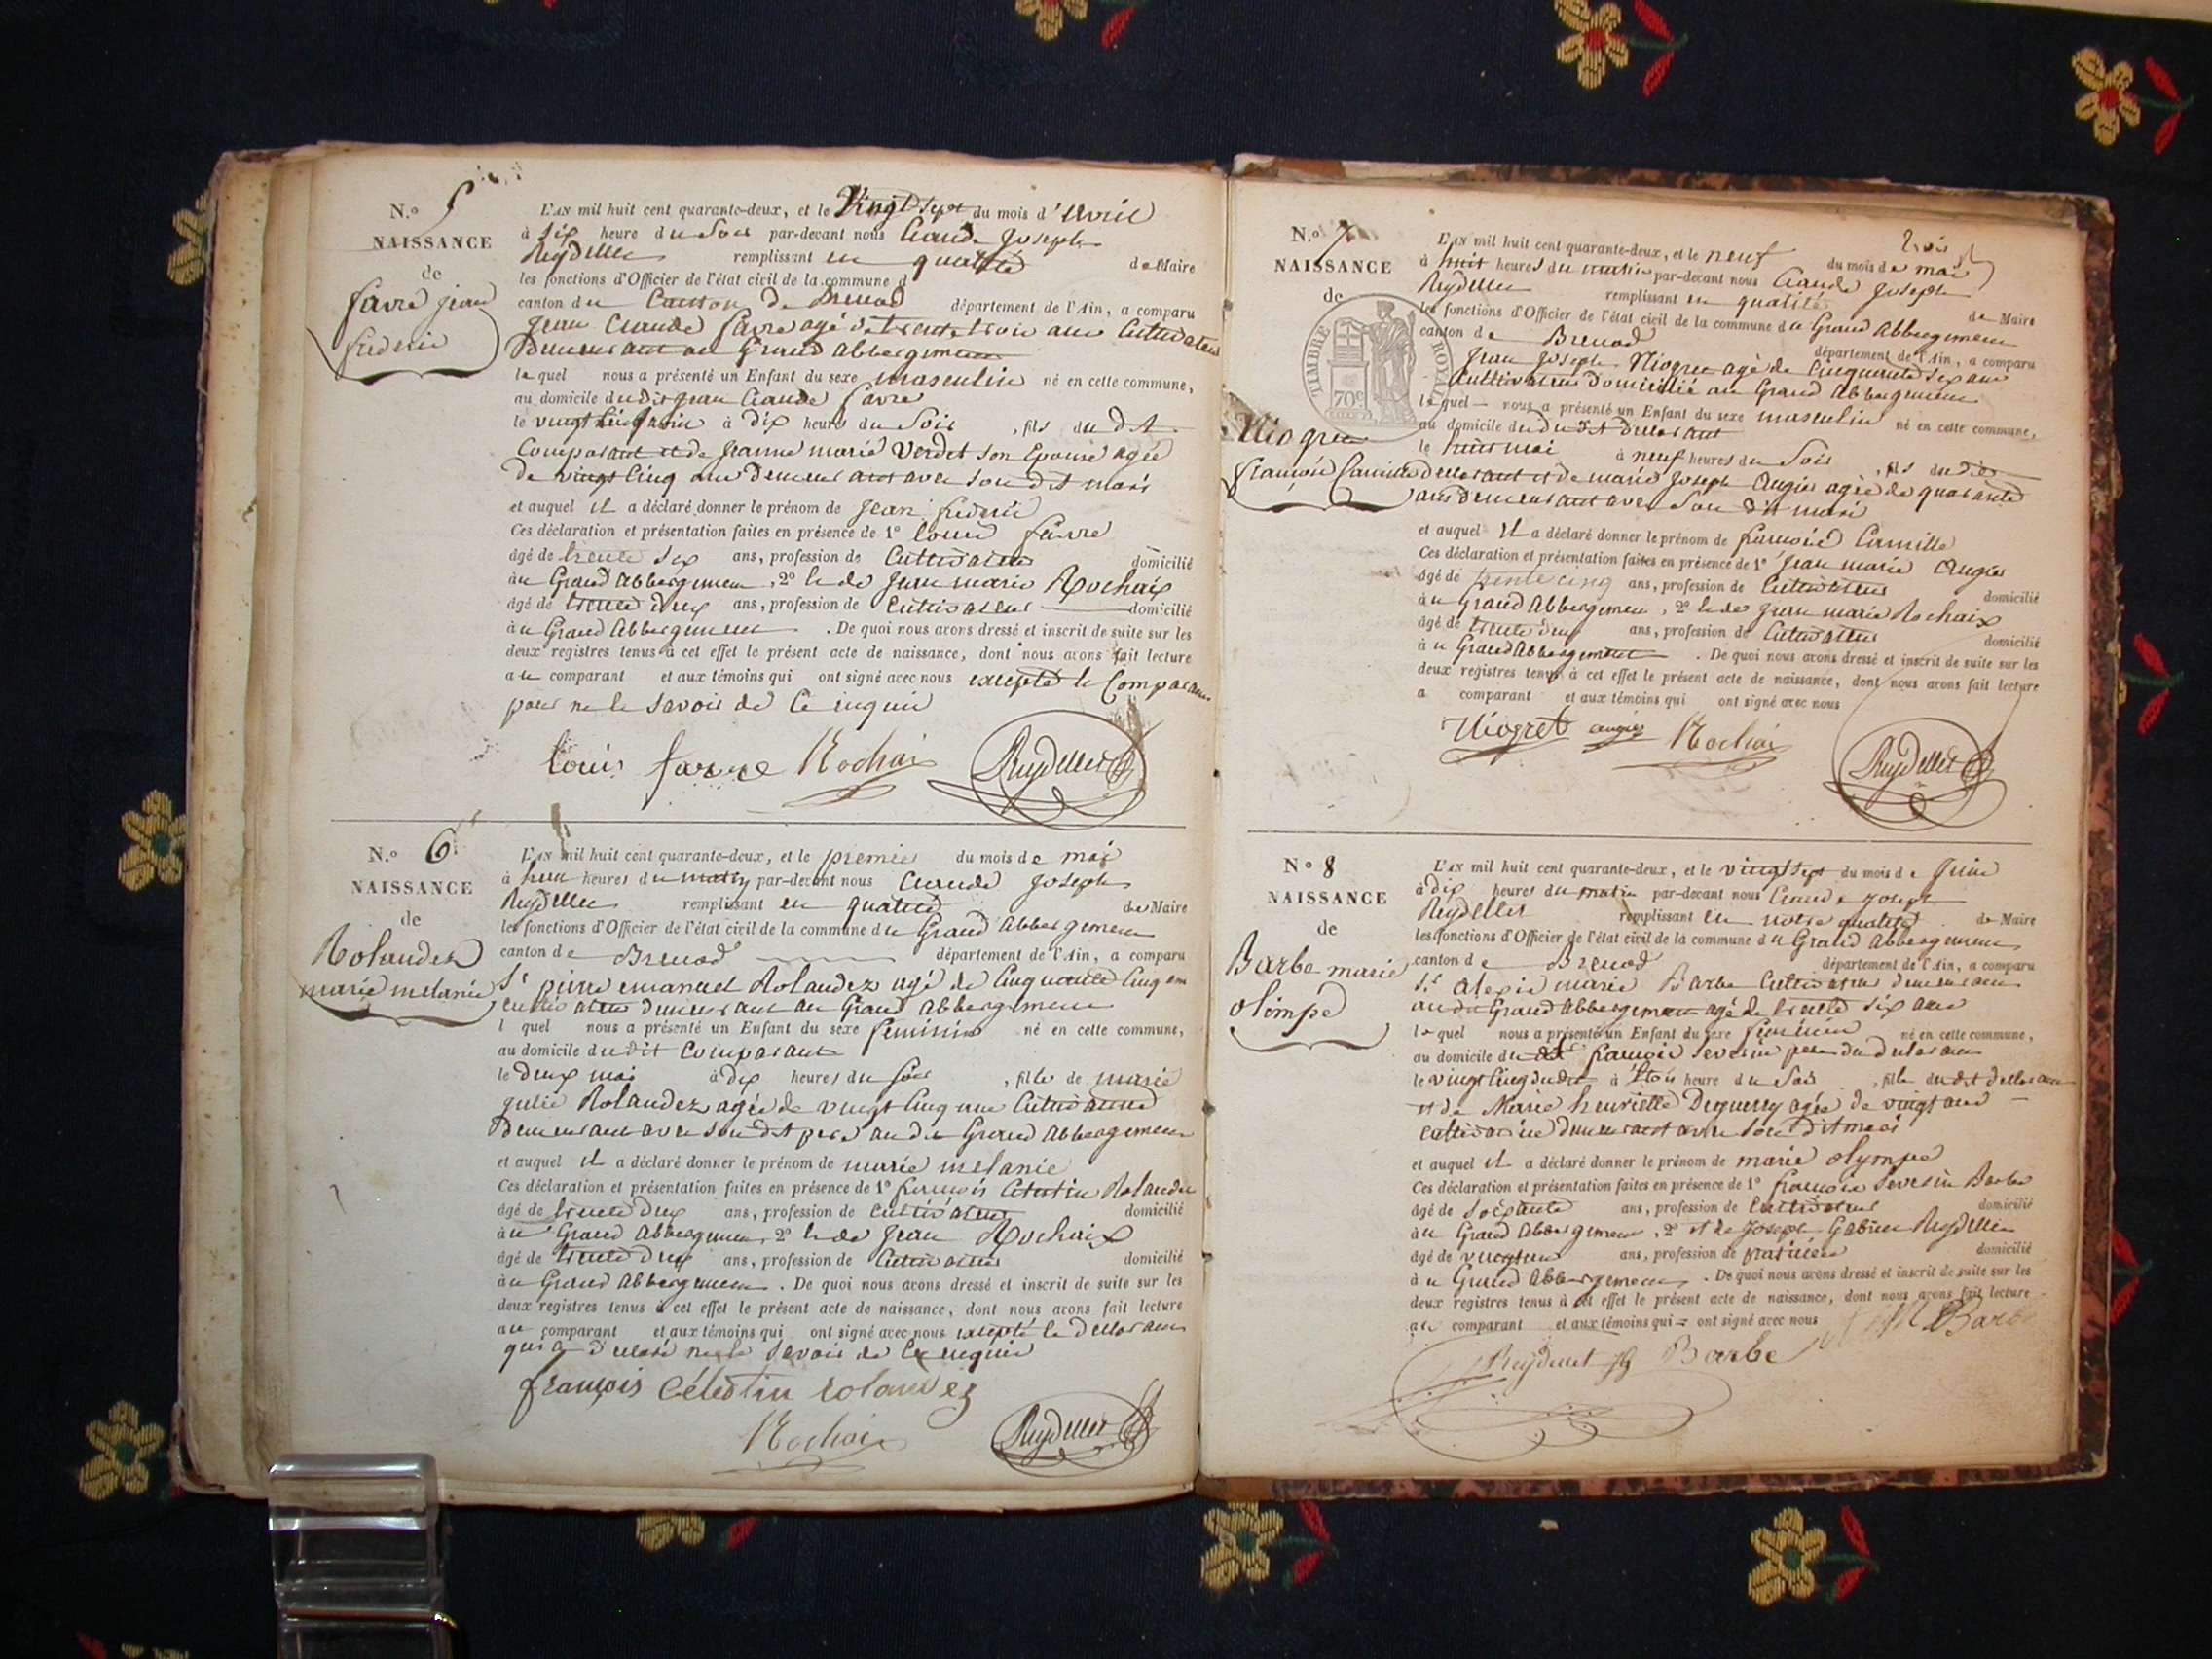 N.o 5
NAISSANCE
de
favre jean
frederic
L'AN mil huit cent quarante-deux, et le Vingt sept du mois d'Avril
à six heure du Soir par-devant nous Claude Joseph
Reydellet remplissant en qualité de Maire
les fonctions d'Officier de l'état civil de la commune d
canton du Canton de Brenod département de l'Ain, a comparu
Jean Claude favre agé de trente trois ans Cultivateur
Demeurant au Grand Abbergement
lequel nous a présenté un Enfant du sexe masculin né en cette commune,
au domicile du dit Jean Claude favre
le vingt à dix heures du Soir , fils du dt
Comparant et de Jeanne marie Verdet son Epouse agée
de vingt cinq ans demeurant avec son dit mari
et auquel il a déclaré donner le prénom de Jean frederic
Ces déclaration et présentation faites en présence de 1o Louis favre
âgé de trente six ans, profession de Cultivateur domicilié
au Grand Abbergement, 2o & de Jean marie Rochaix
âgé de trente deux ans, profession de Cultivateur domicilié
au Grand Abbergement . De quoi nous avons dressé et inscrit de suite sur les
deux registres tenus à cet effet le présent acte de naissance, dont nous avons fait lecture
au comparant et aux témoins qui ont signé avec nous excepté le Comparant
pour ne le savoir de ce enquis
Louis favre Rochaix Reydellet
N.o 6
NAISSANCE
de
Rolandez
marie melanie
L'AN mil huit cent quarante-deux, et le premier du mois de mai
à heures du matin par-devant nous Claude Joseph
Reydellet remplissant en qualité de Maire
les fonctions d'Officier de l'état civil de la commune du Grand Abbergement
canton de Brenod département de l'Ain, a comparu
Sr pierre emanuel Rolandez agé de Cinquante Cinq ans
cultivateur demeurant au Grand Abbergement
l quel nous a présenté un Enfant du sexe feminin né en cette commune,
au domicile dudit Comparant
le deux mai à dix heures du soir , fille de marie
julie Rolandez agée de vingt cinq ans Cultivatrice
Demeurant avec son dit pere au dit Grand Abbergement
et auquel il a déclaré donner le prénom de marie melanie
Ces déclaration et présentation faites en présence de 1o francois Celestin Rolandez
âgé de trente deux ans, profession de Cultivateur domicilié
au Grand Abbergement, 2o & de Jean Rochaix
âgé de trente deux ans, profession de Cultivateur domicilié
au Grand Abbergement . De quoi nous avons dressé et inscrit de suite sur les
deux registres tenus à cet effet le présent acte de naissance, dont nous avons fait lecture
au comparant et aux témoins qui ont signé avec nous excepté le declarant
qui a déclaré ne le savoir de ce enquis
françois Célestin rolandez
Rochaix Reydellet
N.o 7
NAISSANCE
de
TIMBRE ROYAL
70c
Niogret
françois Camille
L'AN mil huit cent quarante-deux, et le neuf du mois de mai
trois
à huit heures du matin par-devant nous Claude Joseph
Reydellet remplissant en qualité de Maire
les fonctions d'Officier de l'état civil de la commune du Grand Abbergement
canton de Brenod département de l'Ain, a comparu
Jean Joseph Niogret agé de Cinquante six ans
Cultivateur domicilié au Grand Abbergement
lequel nous a présenté un Enfant du sexe masculin né en cette commune,
au domicile du dit declarant
le huit mai à neuf heures du Soir , fils du dit
declarant et de marie Joseph Augier agée de quarante
ans demeurant avec son dit mari
et auquel il a déclaré donner le prénom de francois Camille
Ces déclaration et présentation faites en présence de 1o Jean marie Augier
âgé de trente cinq ans, profession de Cultivateur domicilié
au Grand Abbergement, 2o & de Jean marie Rochaix
âgé de trente deux ans, profession de Cultivateur domicilié
au Grand Abbergement . De quoi nous avons dressé et inscrit de suite sur les
deux registres tenus à cet effet le présent acte de naissance, dont nous avons fait lecture
a comparant et aux témoins qui ont signé avec nous
Niogret augier Rochaix
Reydellet
N° 8
NAISSANCE
de
Barbe marie
olimpe
L'AN mil huit cent quarante-deux, et le vingt sept du mois de Juin
à dix heures du matin par-devant nous Claude Joseph
Reydellet remplissant en notre qualité de Maire
les fonctions d'Officier de l'état civil de la commune du Grand Abbergement
canton de Brenod département de l'Ain, a comparu
Sr Alexis marie Barbe Cultivateur demeurant
au dit Grand Abbergement agé de trente six ans
lequel nous a présenté un Enfant du sexe féminin né en cette commune,
au domicile du francois Severin pere du declarant
le vingt cinq du dit à trois heure du Soir , fille du dit declarant
et de Marie henriette Duguerry agée de vingt ans
cultivatrice demeurant avec son dit mari
et auquel il a déclaré donner le prénom de marie olympe
Ces déclaration et présentation faites en présence de 1o francois Severin Barbe
âgé de soixante ans, profession de Cultivateur domicilié
au Grand Abbergement, 2o et de Joseph Reydellet
âgé de ans, profession de domicilié
au Grand Abbergement . De quoi nous avons dressé et inscrit de suite sur les
deux registres tenus à cet effet le présent acte de naissance, dont nous avons fait lecture
au comparant et aux témoins qui = ont signé avec nous A M Barbe
Reydellet Barbe